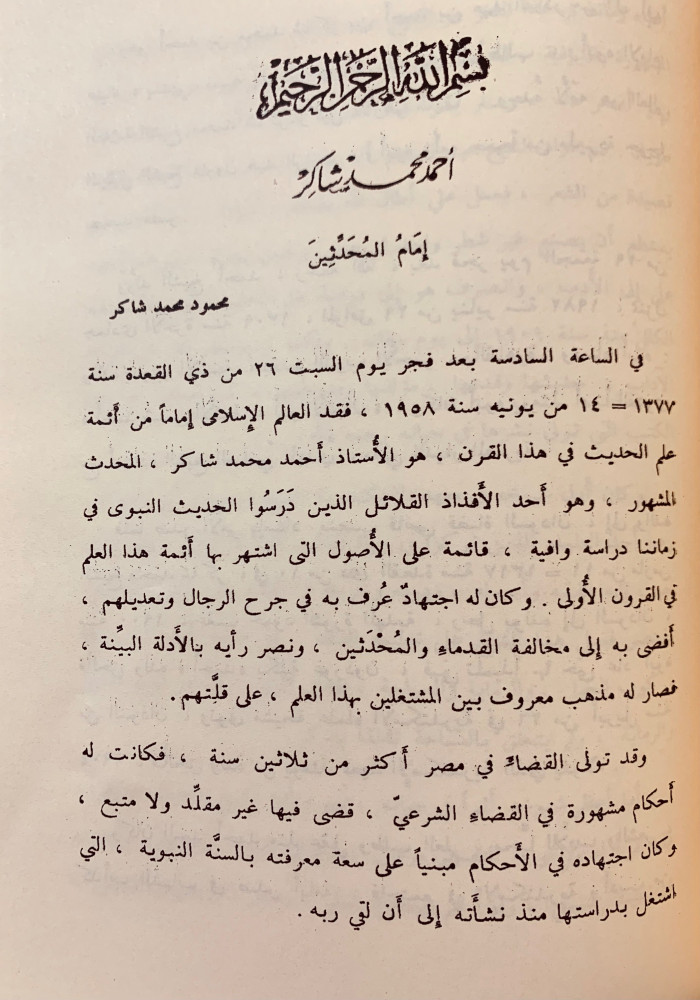 بسم الله الرحمن الرحيم
أحمد محمد شاكر
إمَامُ المُحَدِّثِينَ
محمود محمد شاكر
في الساعة السادسة بعد فجر يوم السبت ٢٦ من ذي القعدة سنة
١٣٧٧ = ١٤ من يونيه سنة ١٩٥٨ ، فقد العالم الإِسلامى إِماماً من أَئمة
علم الحديث في هذا القرن ، هو الأُستاذ أَحمد محمد شاكر ، المحدث
المشهور ، وهو أَحد الأَفذاذ القلائل الذين دَرَسُوا الحديث النبوى في
زماننا دراسة وافية ، قائمة على الأُصول التى اشتهر بها أَئمة هذا العلم
في القرون الأُولى . وكان له اجتهادٌ عُرف به في جرح الرجال وتعديلهم ،
أَفضى به إِلى مخالفة القدماءِ والمُحْدَثين ، ونصر رأيه بالأَدلة البيِّنة ،
فصار له مذهب معروف بين المشتغلين بهذا العلم ، على قلَّتهم .
وقد تولى القضاءَ في مصر أَكثر من ثلاثين سنة ، فكانت له
أَحكام مشهورة في القضاءِ الشرعيّ ، قضى فيها غير مقلِّد ولا متبع ،
وكان اجتهاده في الأَحكام مبنياً على سعة معرفته بالسنَّة النبوية ، التي
اشتغل بدراستها منذ نشأَته إِلى أَن لقي ربه .